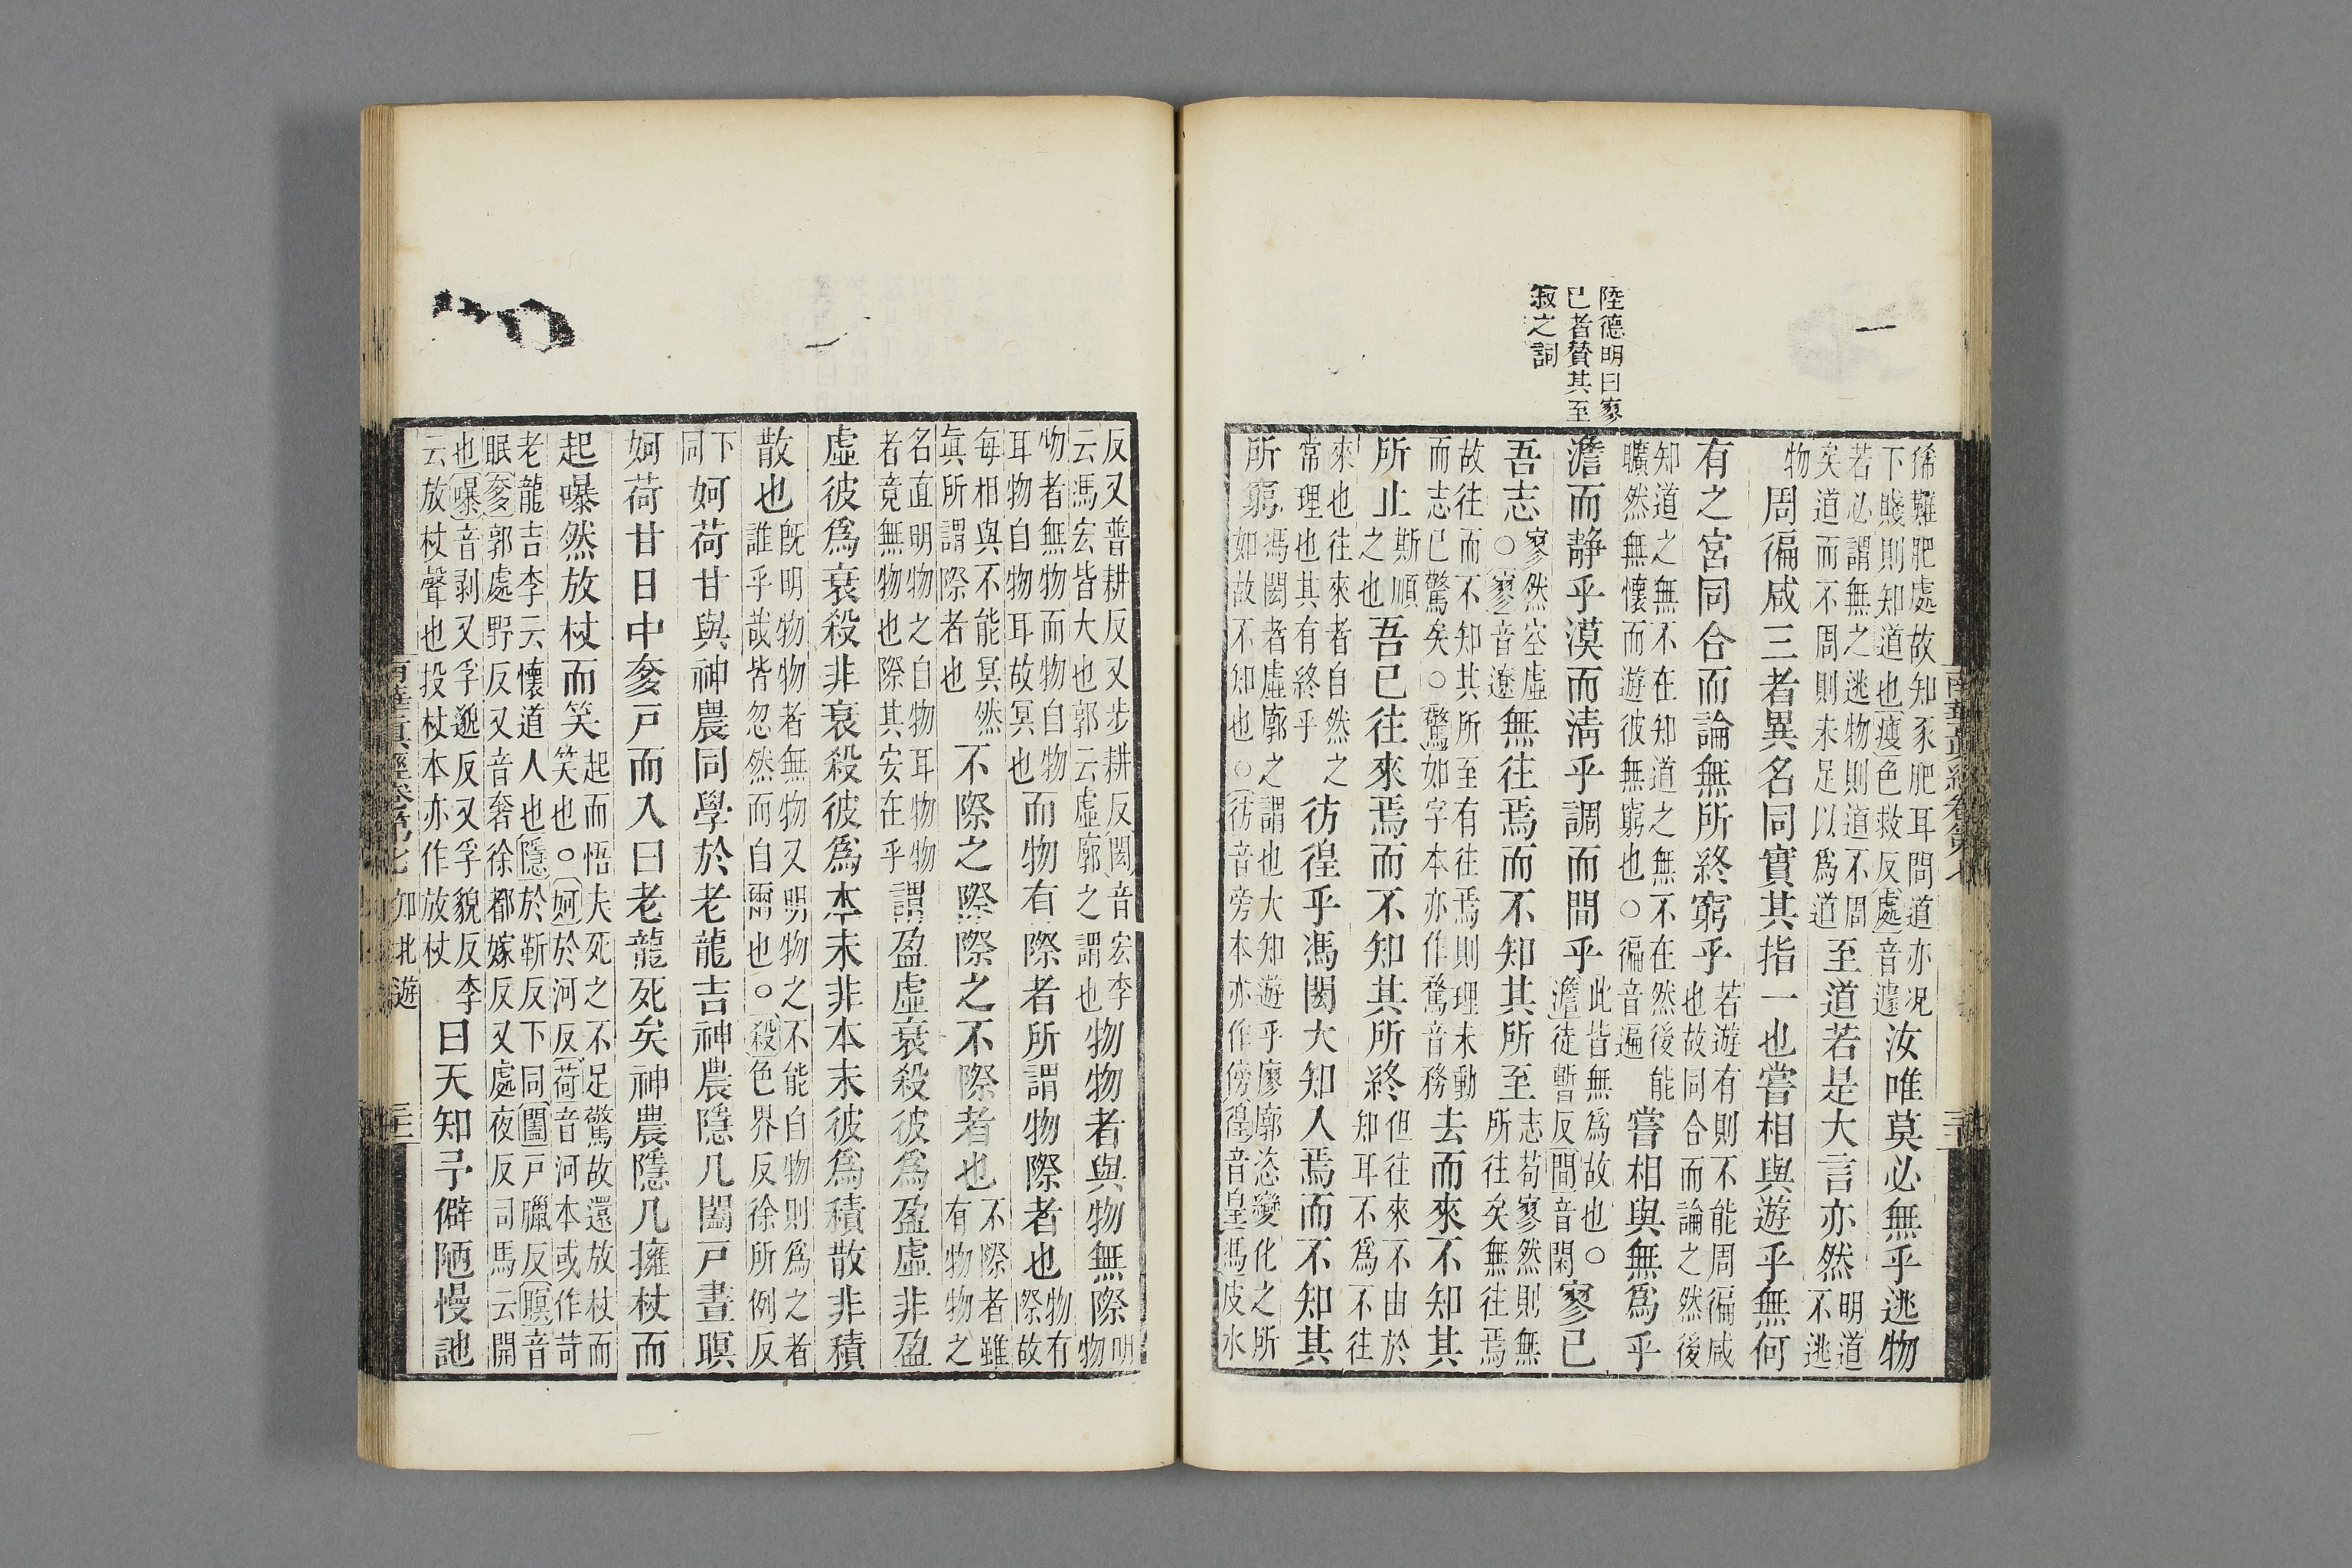 陸德明曰寥
已者賛其至
寂之詞
狶難肥處故知豕肥耳問道亦况下賤則知道也瘦色救反處音遽汝唯莫必無乎逃物
若必謂無之逃物則道不周矣道而不周則未足以為道至道若是大言亦然明道不逃
物周徧咸三者異名同實其指一也嘗相與遊乎無何
有之宮同合而論無所終窮乎若遊有則不能周徧咸也故同合而論之然後
知道之無不在知道之無不在然後能曠然無懷而遊彼無窮也○徧音遍嘗相與無爲乎
澹而靜乎漠而清乎調而閒乎此皆無爲故也○澹徒暫反閒音閑寥已
吾志寥然空虛○寥音遼無往焉而不知其所至志苟寥然則無所往矣無往焉
故往而不知其所至有往焉則理未動而志已驚矣○驚如字本亦作騖音務去而來不知其
所止斯順之也吾已往來焉而不知其所終但往來不由於知耳不爲不往
來也往來者自然之常理也其有終乎彷徨乎馮閎大知入焉而不知其
所窮馮閎者虛廓之謂也大知遊乎廖廓恣變化之所如故不知也○彷音旁本亦作傍徨音皇馮皮冰
南華眞經卷第七
反又普耕反又步耕反閎音宏李云馮宏皆大也郭云虛廓之謂也物物者與物無際明物
物者無物而物自物耳物自物耳故冥也而物有際者所謂物際者也物有際故
每相與不能冥然眞所謂際者也不際之際際之不際者也不際者雖有物物之
名直明物之自物耳物物者竟無物也際其安在乎謂盈虛衰殺彼爲盈虛非盈
虛彼爲衰殺非衰殺彼爲本末非本末彼爲積散非積
散也旣明物物者無物又明物之不能自物則爲之者誰乎哉皆忽然而自爾也○殺色界反徐所例反
下同妸荷甘與神農同學於老龍吉神農隱几闔戸晝瞑
妸荷甘日中奓戸而入曰老龍死矣神農隱几擁杖而
起曝然放杖而笑起而悟夫死之不足驚故還放杖而笑也○妸於河反荷音河本或作苛
老龍吉李云懷道人也隱於靳反下同闔戸臘反瞑音眠奓郭處野反又音奢徐都嫁反又處夜反司馬云開
也曝音剥又孚邈反又孚貌反李云放杖聲也投杖本亦作放杖曰天知予僻陋慢訑
南華眞經卷第七 知北遊